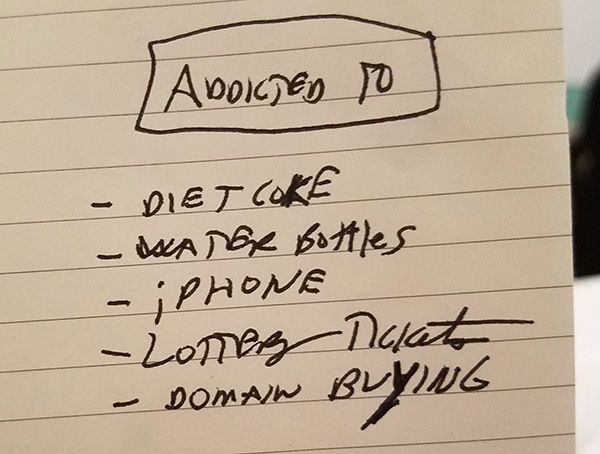 ADDICTED TO
- DIET COKE
- WATER Bottles
- iPHONE
- LOTTERY Tickets
- DOMAIN BUYING